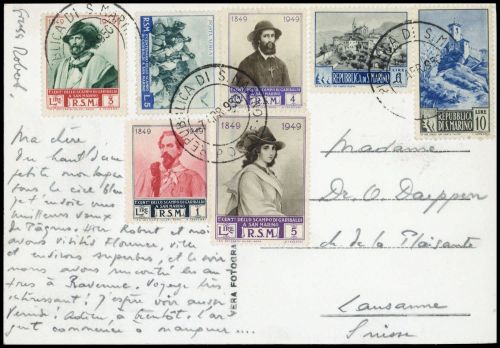 Gruss Robert.
REPUBBLICA DI S. MARINO
LIRE 3
R.S.M.
R.S.M.
L.5
1849 1949
LIRE 4
R.S.M.
LIRE 1
REPUBBLICA DI S. MARINO
REPUBBLICA DI S. MARINO
LIRE 10
1849 1949
CENT? DELLO SCAMPO DI GARIBALDI
A SAN MARINO
LIRE 1
R.S.M.
1849 1949
CENT? DELLO SCAMPO DI GARIBALDI
A SAN MARINO
LIRE 5
R.S.M.
Ma chère
Du haut d'une
petite montagne
sous le ciel bleu
je t'envoie mes
meilleurs vœux
de Pâques. Hier Robert et moi
avons visité Florence, ville
et environs superbes, et le soir
nous avons rencontré les
à Ravenne. Voyage très
intéressant! J'espère voir
Venise! Adieu, à bientôt. L'ar-
gent commence à manquer ....
VERA FOTOGRAFIA
Madame
Dr. O. Daeppen
ch. de la Plaisante
Lausanne
Suisse